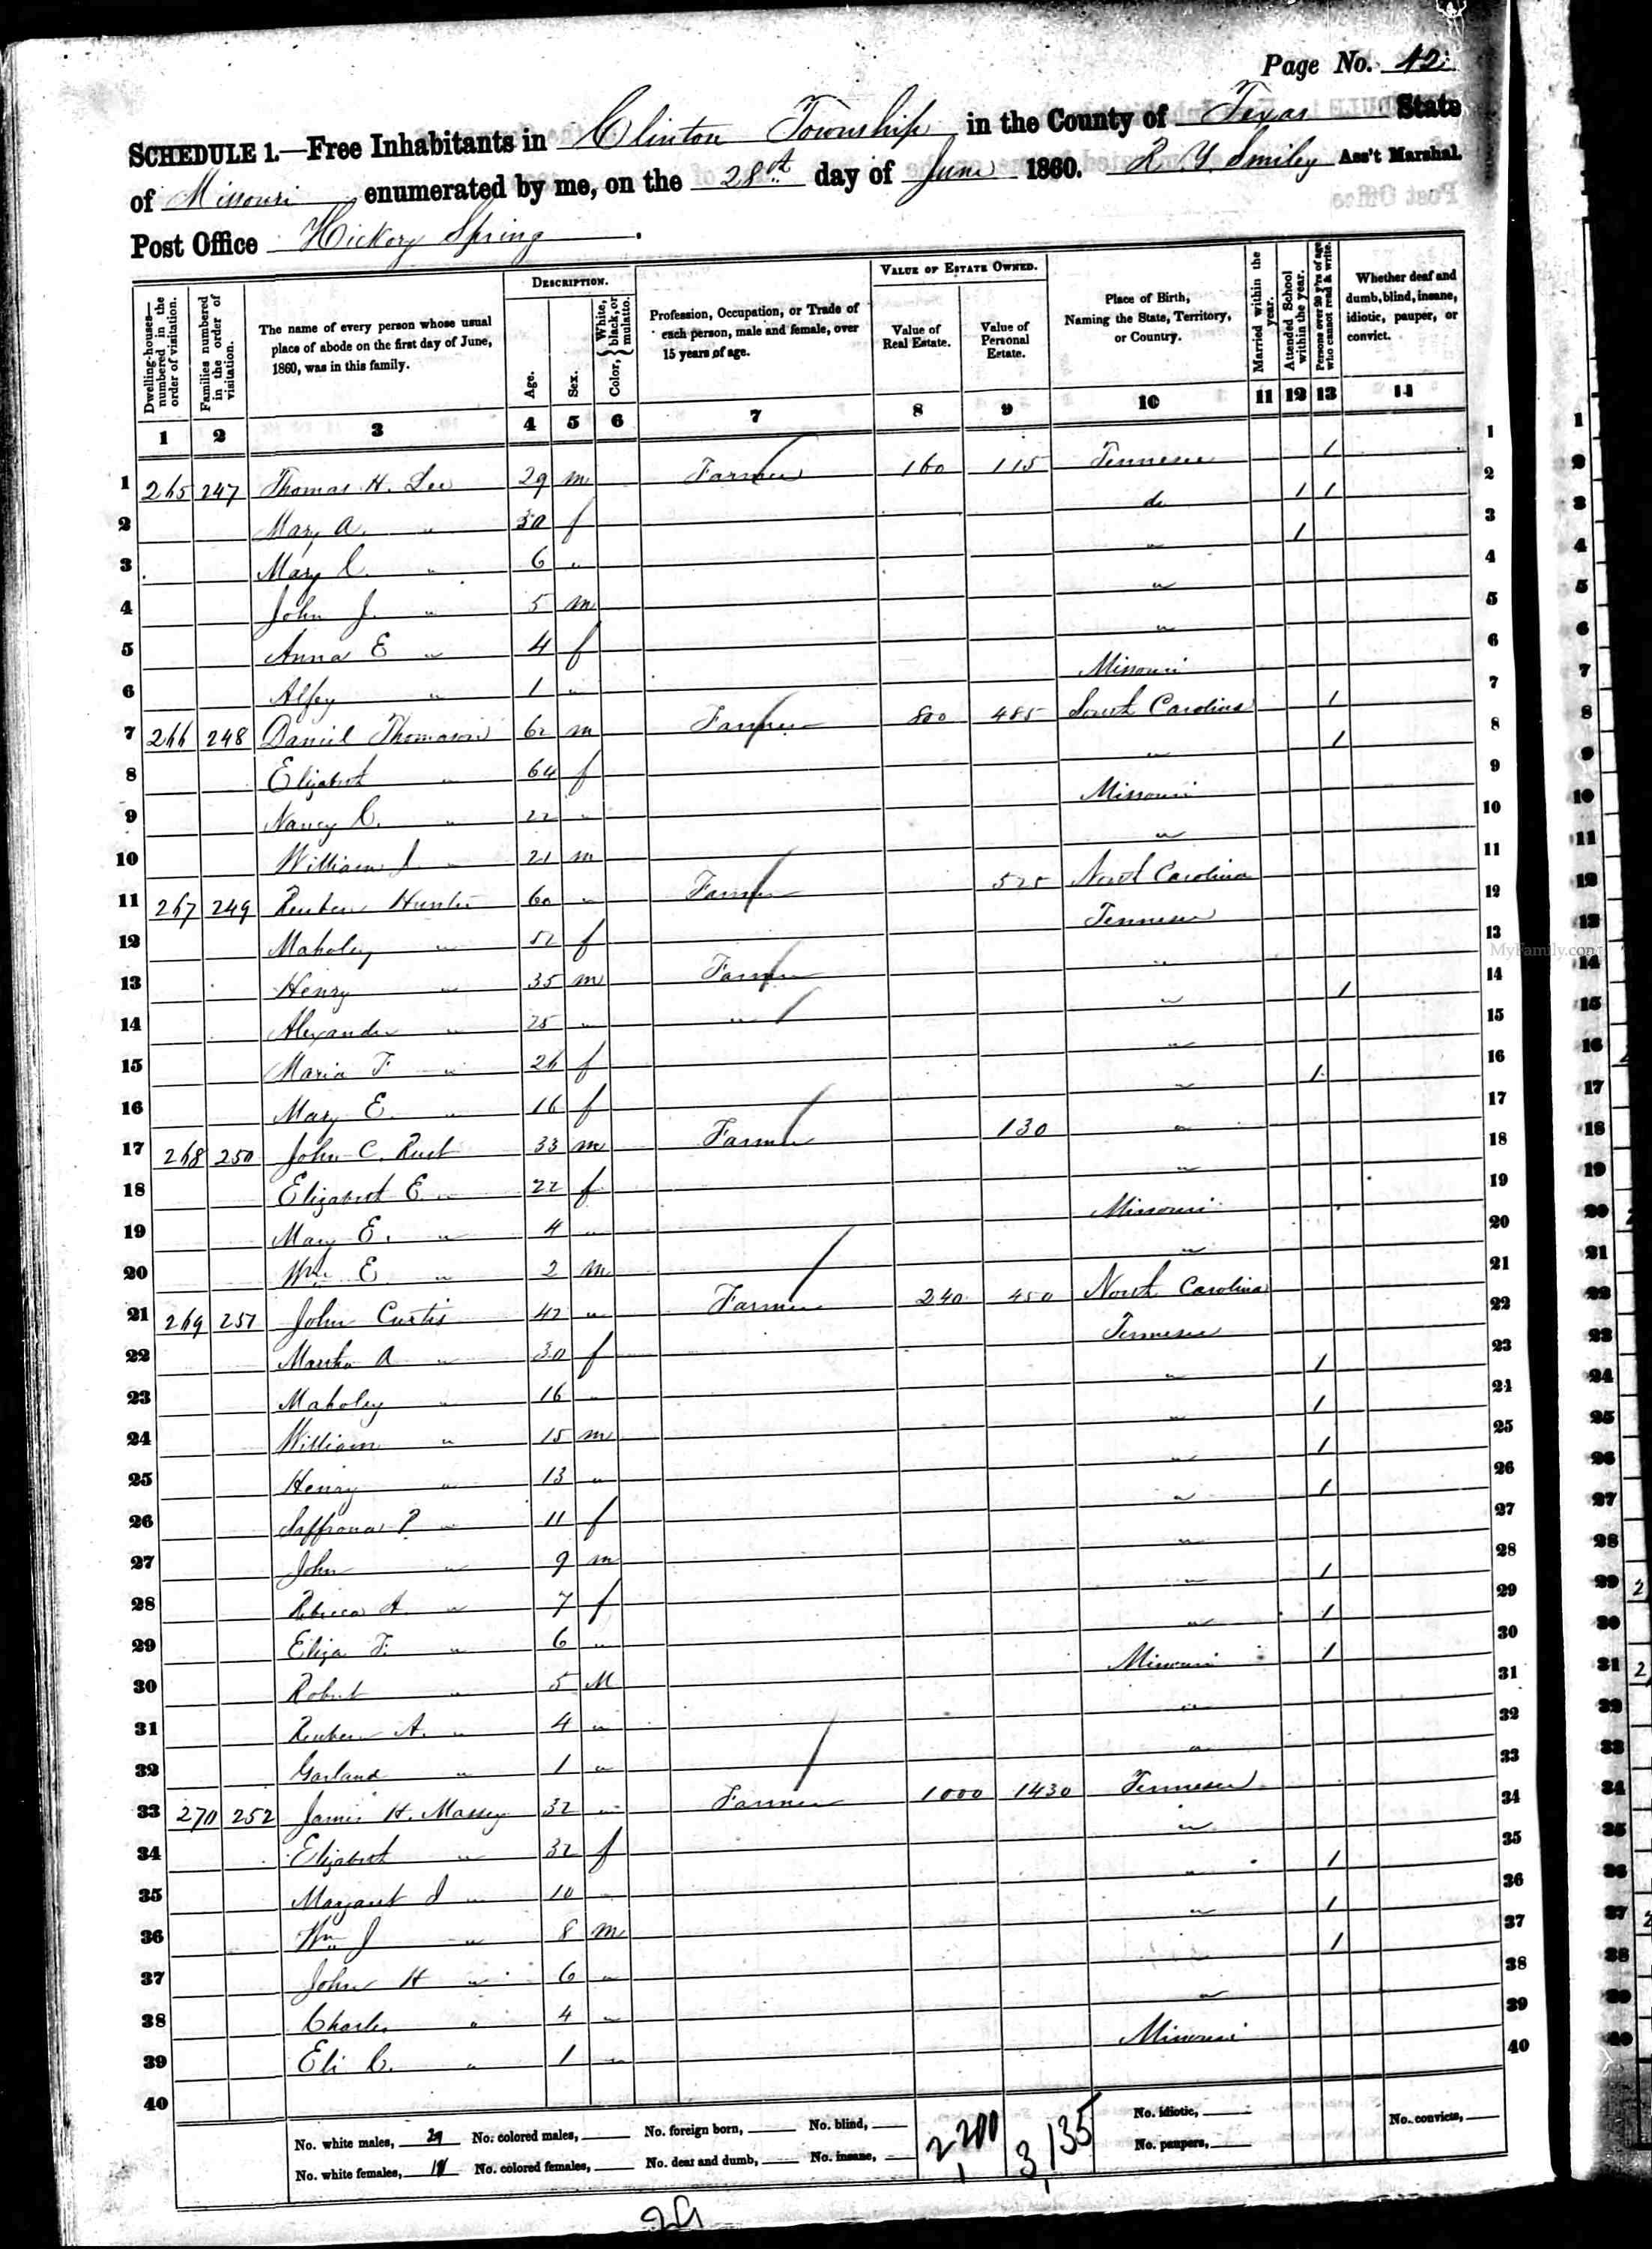 Page No. 42
SCHEDULE 1.—Free Inhabitants in Clinton Township in the County of Texas State
of Missouri enumerated by me, on the 28th day of June 1860. R. Y. Smiley Ass't Marshal.
Post Office Hickory Spring.
Dwelling-houses—numbered in the order of visitation.
Families numbered in the order of visitation.
The name of every person whose usual place of abode on the first day of June, 1860, was in this family.
DESCRIPTION.
Age.
Sex.
Color, { White, black, or mulatto.
Profession, Occupation, or Trade of each person, male and female, over 15 years of age.
VALUE OF ESTATE OWNED.
Value of Real Estate.
Value of Personal Estate.
Place of Birth, Naming the State, Territory, or Country.
Married within the year.
Attended School within the year.
Persons over 20 y'rs of age who cannot read & write.
Whether deaf and dumb, blind, insane, idiotic, pauper, or convict.
1 2 3 4 5 6 7 8 9 10 11 12 13 14
1 265 247 Thomas H. Lee 29 m Farmer 160 115 Tennessee 1 1
2 Mary A. " 30 f do 1 1 2
3 Mary C. " 6 " " 1 3
4 John J. " 5 m " 4
5 Anna E " 4 f " 5
6 Alfey " 1 " Missouri 6
7 266 248 Daniel Thomason 62 m Farmer 800 485 South Carolina 1 7
8 Elizabeth " 64 f " 1 8
9 Nancy C. " 22 " Missouri 9
10 William J. " 21 m " 10
11 267 249 Reuben Hunter 60 " Farmer 525 North Carolina 11
12 Maholey " 52 f Tennessee 12
13 Henry " 35 m Farmer " 13
14 Alexander " 25 " " " 1 14
15 Maria F. " 26 f " 15
16 Mary E. " 16 f " 1 16
17 268 250 John C. Rust 33 m Farmer 130 " 17
18 Elizabeth E. " 22 f " 18
19 Mary E. " 4 " Missouri 19
20 Wm. E " 2 m " 20
21 269 251 John Curtis 42 " Farmer 240 450 North Carolina 21
22 Martha A " 30 f Tennessee 22
23 Maholey " 16 " " 1 23
24 William " 15 m " 1 24
25 Henry " 13 " " 1 25
26 Saffrona P. " 11 f " 1 26
27 John " 9 m " 27
28 Rebecca A. " 7 f " 1 28
29 Eliza F. " 6 " " 1 29
30 Robert " 5 M Missouri 1 30
31 Reuben A. " 4 " " 31
32 Garland " 1 " " 32
33 270 252 James H. Massey 32 " Farmer 1000 1430 Tennessee 33
34 Elizabeth " 32 f " 34
35 Margaret J " 10 " " 1 35
36 Wm J " 8 m " 1 36
37 John H " 6 " " 1 37
38 Charles " 4 " " 38
39 Eli C. " 1 " Missouri 39
40 40
No. white males, No. colored males, No. foreign born, No. blind, 2,200 3,135 No. idiotic, No. convicts,
No. white females, No. colored females, No. deaf and dumb, No. insane, No. paupers,
MyFamily.com